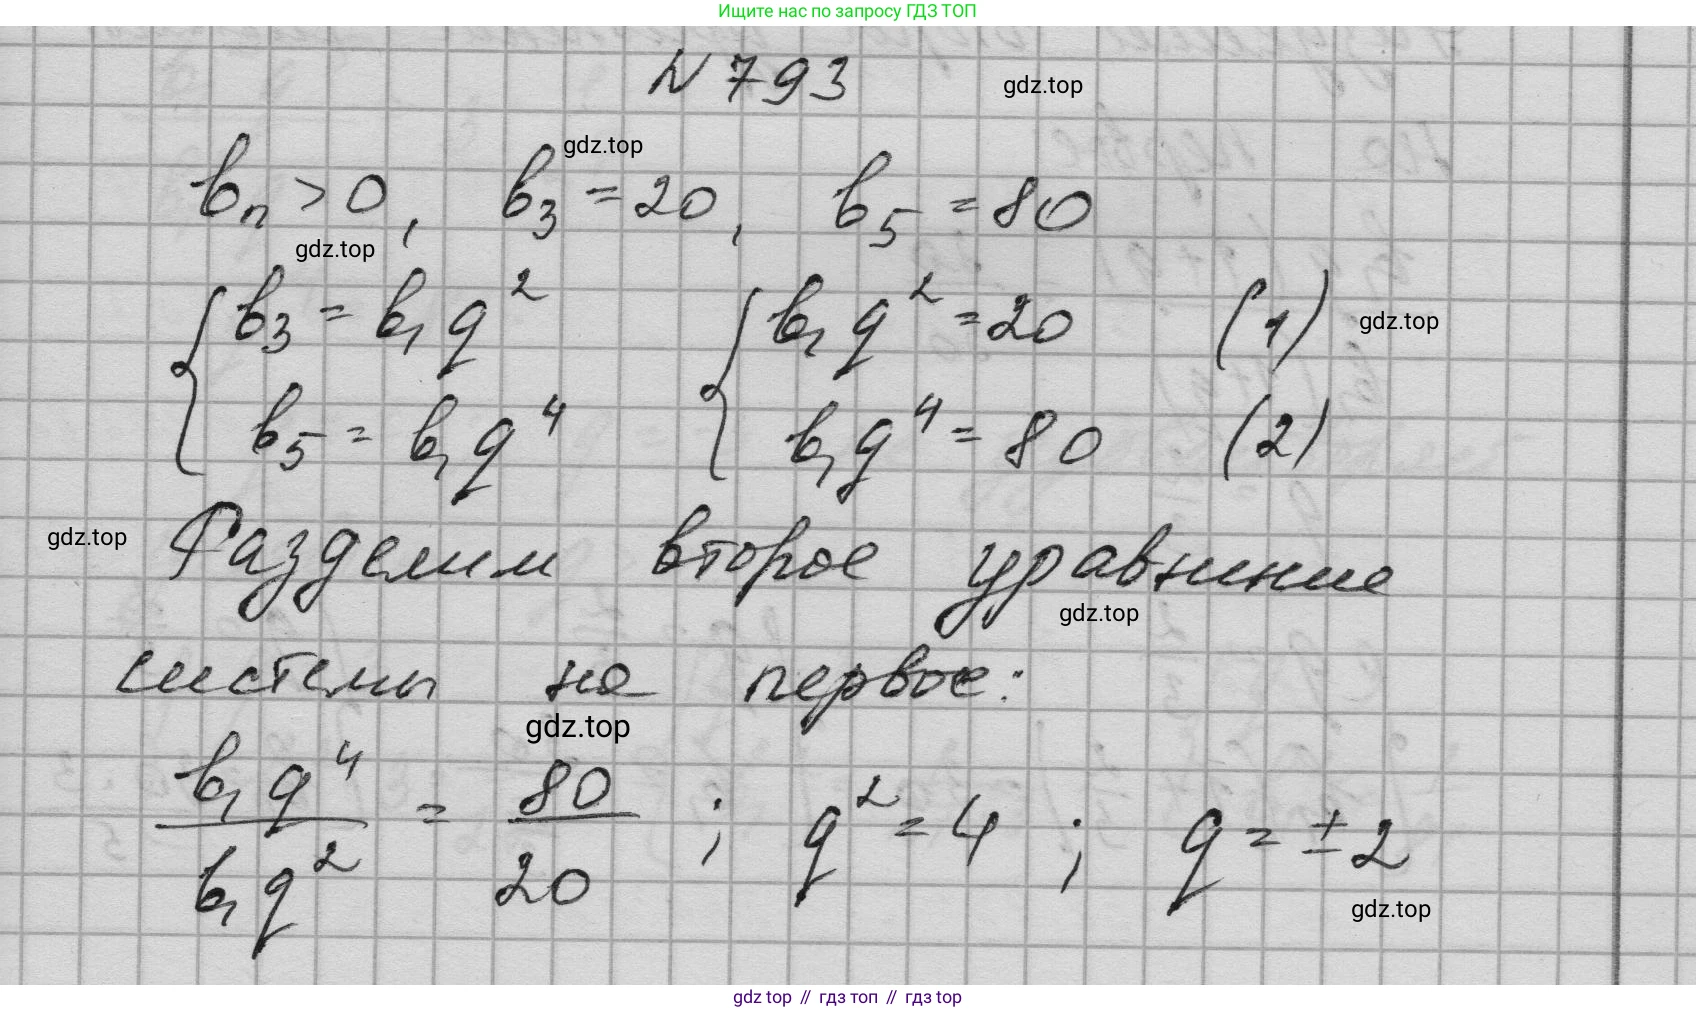 Ищите нас по запросу ГДЗ ТОП
N 793
gdz.top
gdz.top
bₙ > 0, b₃ = 20, b₅ = 80
gdz.top
{ b₃ = b₁ q² { b₁ q² = 20 (1)
gdz.top
b₅ = b₁ q⁴ b₁ q⁴ = 80 (2)
gdz.top
Разделим второе уравнение
gdz.top
системы на первое:
gdz.top
b₁ q⁴ / b₁ q² = 80 / 20 ; q² = 4 ; q = ± 2
gdz.top
gdz top // гдз топ // гдз top